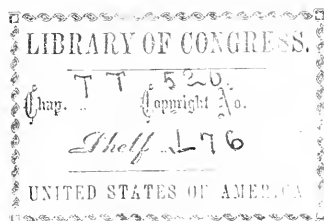 LIBRARY OF CONGRESS.
Chap. TT 520 Copyright No.
Shelf .L76
UNITED STATES OF AMERICA